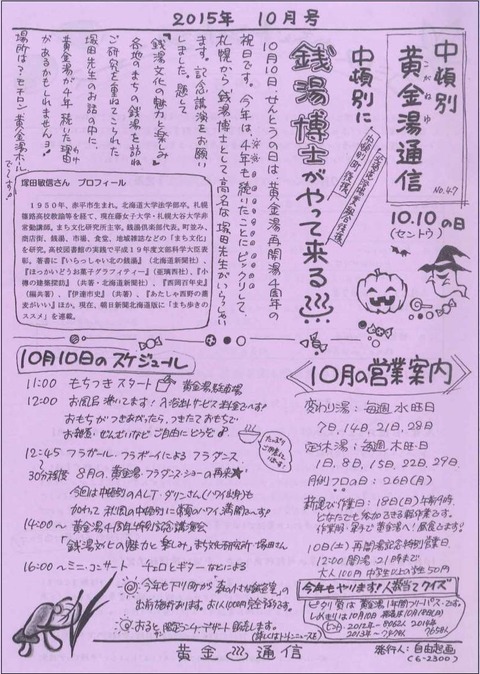 2015年 10月号
中頓別
黄金湯通信
こがねゆ
No.47
10.10の日
(セントウ)
中頓別に
銭湯博士がやって来る
10月10日、せんとうの日は、黄金湯再開湯4周年の
祝日です。今年は、4年も続いたことにビックリして、
札幌から銭湯博士として高名な塚田先生がいらっしゃい
ます。記念講演をお願い
しました。題して
『銭湯文化の魅力と楽しみ』
各地のまちの銭湯を訪ね
ご研究を重ねてこられた
塚田先生のお話の中に、
黄金湯が4年続いた理由
があるかもしれませんョ!
場所は?モチロン黄金湯ホール
で〜す!
塚田敏信さん プロフィール
1950年、赤平市生まれ。北海道大学法学部卒。札幌
籘路高校教諭等を経て、現在藤女子大学・札幌大谷大学非
常勤講師。まち文化研究所主宰。銭湯倶楽部代表。町並み、
商店街、銭湯、市場、食堂、地域雑誌などの「まち文化」
を研究。高校図書館の実践で平成19年度文部科学大臣表
彰。著書に『いらっしゃい北の銭湯』（北海道新聞社）、
『ほっかいどうお菓子グラフィティー』（亜璃西社）、『小
樽の建築探訪』（共著・北海道新聞社）、『西岡百年史』
（編共著）、『伊達市史』（共著）、『あたしゃ西野の蕎
麦がいい』ほか。現在、朝日新聞北海道版に「まち歩きの
ススメ」を連載。
10月10日のスケジュール
11:00 もちつきスタート 黄金湯駐車場
12:00 お風呂沸いてます!入浴料サービス料金でいます!
おもちがつきあがったら、つきたておもちで
お雑煮・ぜんざいなどご自由にどうぞ
たっぷりご用意しています!
12:45 フラガール・フラボーイによるフラダンス
30分程度 8月の、黄金湯・フラダンス・ショーの再来
14:00〜 黄金湯4周年特別記念講演会
「銭湯文化の魅力と楽しみ」まち文化研究所・塚田さん
16:00〜ミニ・コンサート チェロとギターなどによる
10月の営業案内
変わり湯:毎週 水曜日
7日、14日、21日、28日
定休湯:毎週 木曜日
1日、8日、15日、22日、29日
月例フロの日:26日(月)
薪運び作業日:18日(日)午前9時、
どなたでも参加できる軽作業です。
10日(土)再開湯記念特別営業日
12:00 開湯 21時まで
大人100円 中学生以下の学生50円
今年もやります!人数当てクイズ
ピタリ賞は黄金湯1年間フリーパスです。
ヒント 2012年〜8062人 2014年
2013年〜7978人 7658人
黄金 通信
発行人:自由起画
(6-2300)